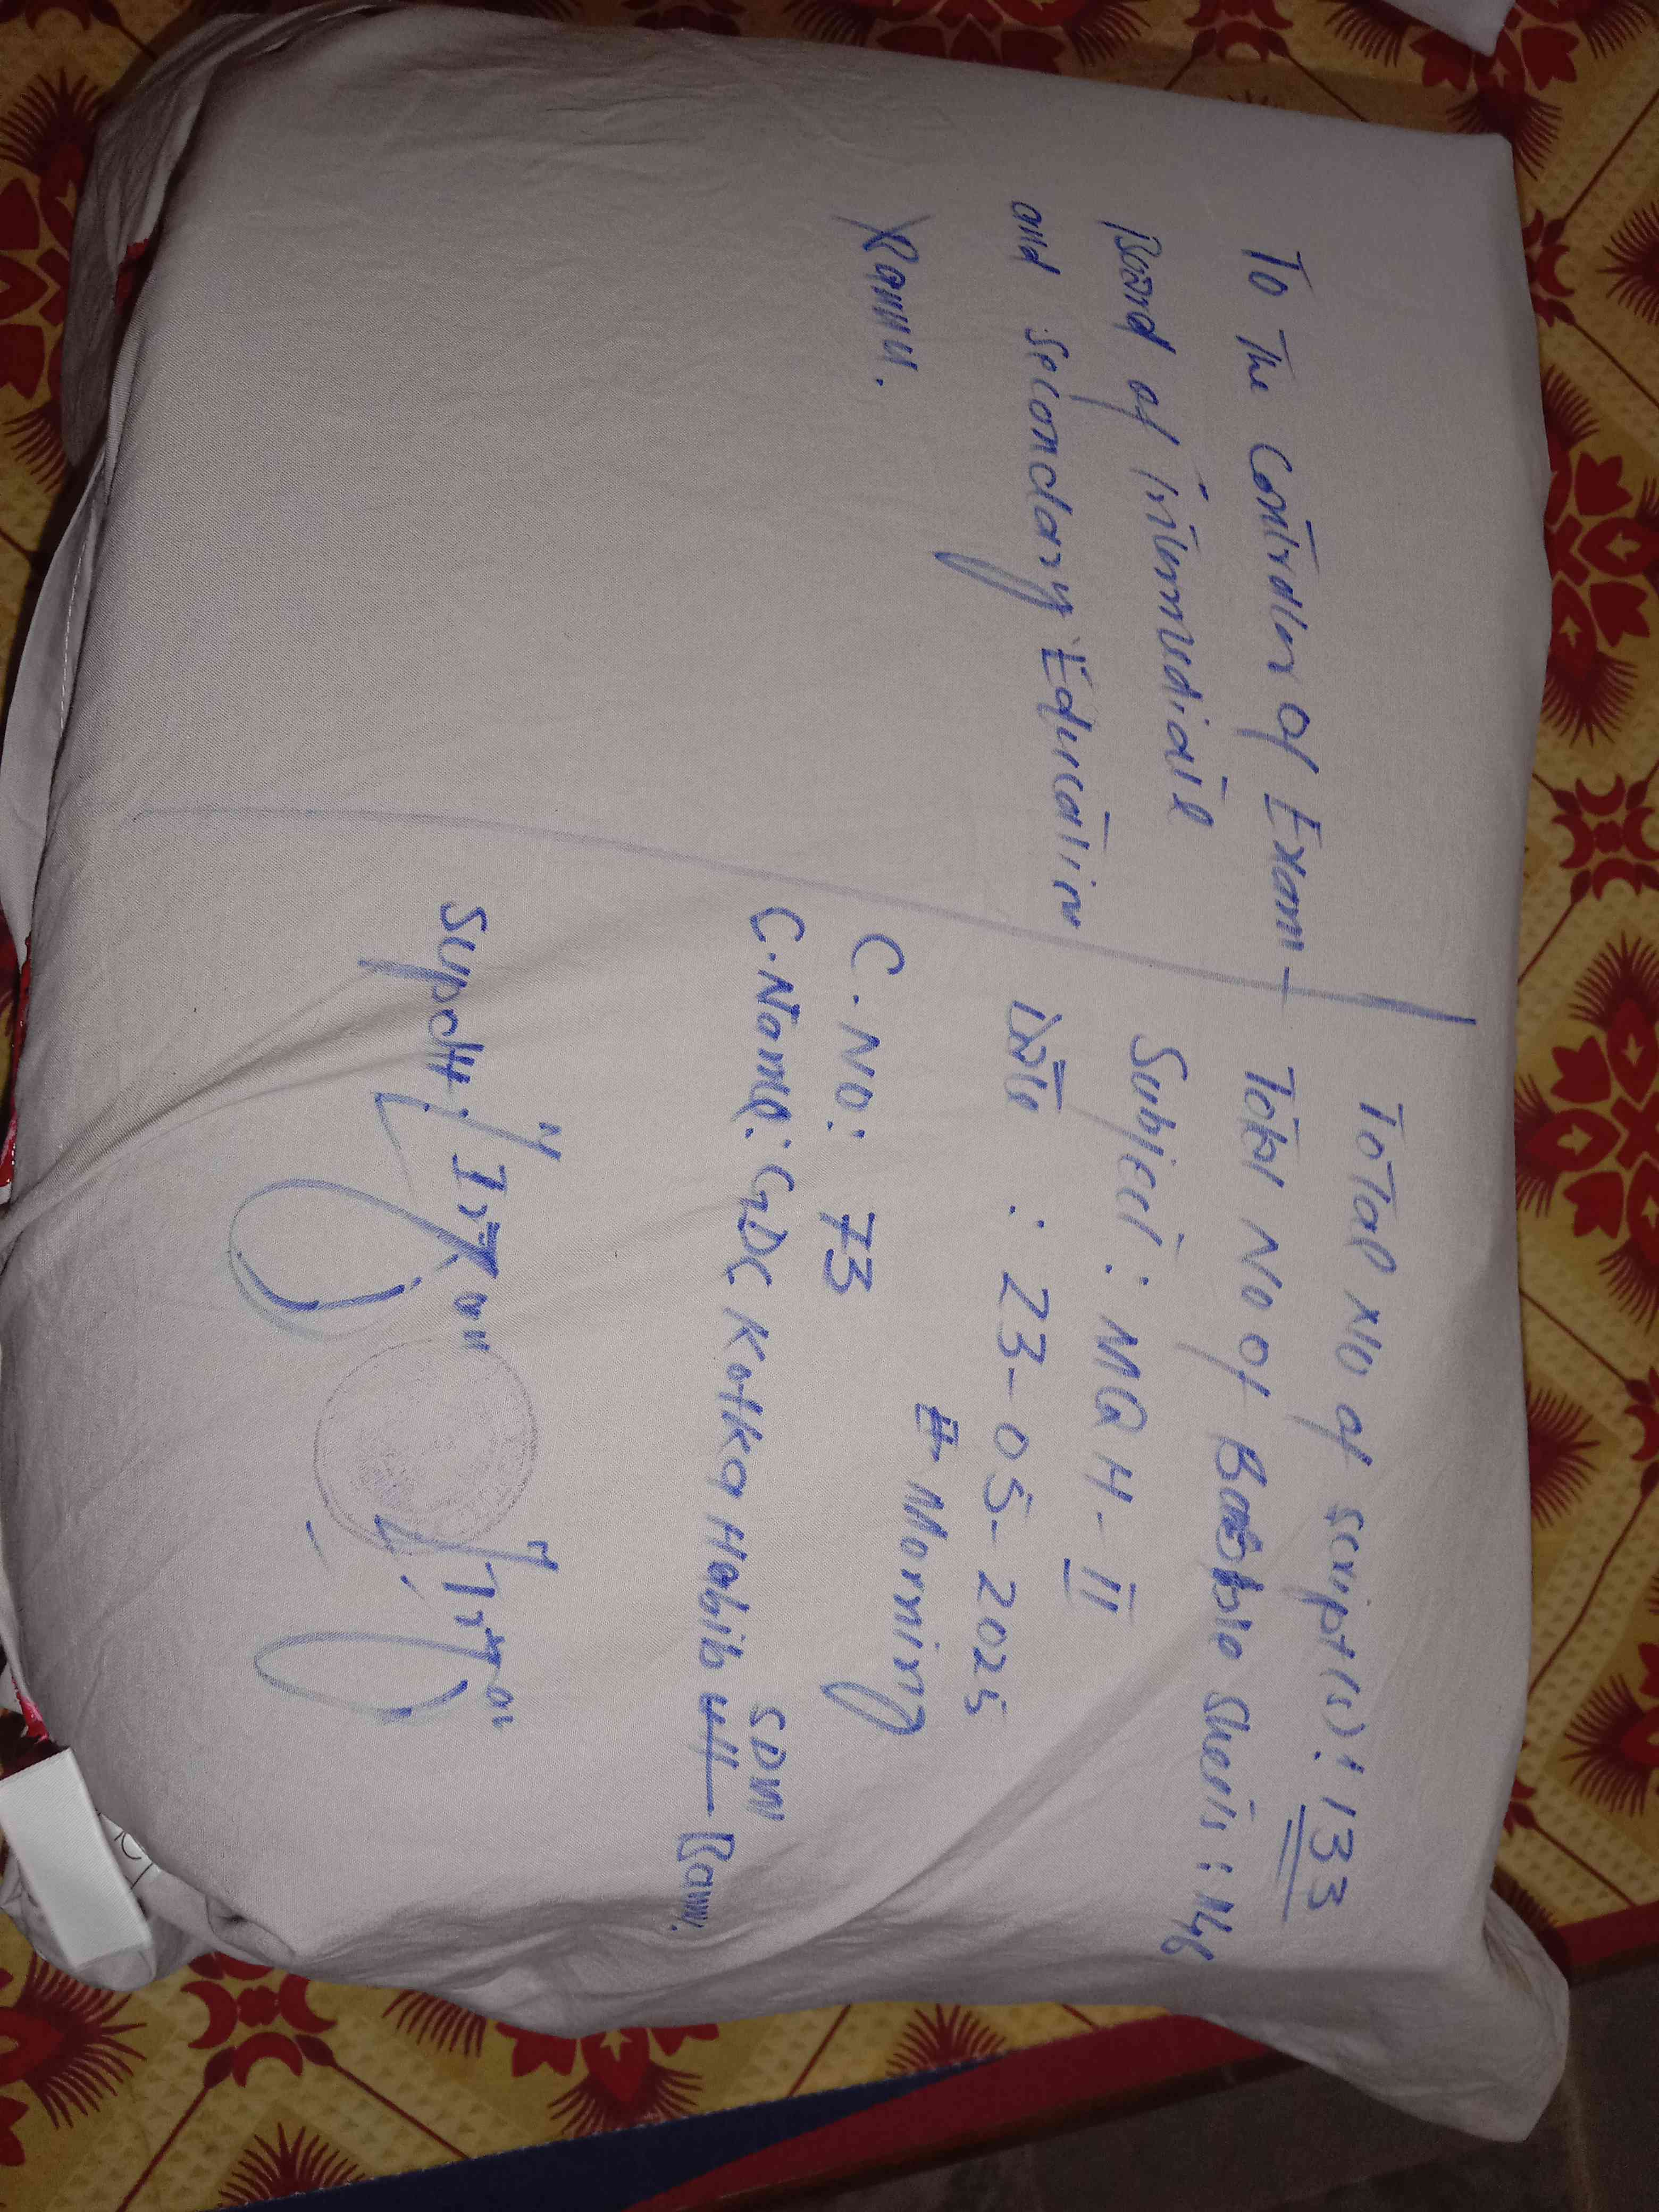 To The Controller of Exam
Board of intermediate
and secondary Education
Bannu.
Total No of script(s): 133
Total No of Sheets: 146
Subject: MQH-II
Date : 23-05-2025
Morning
C.No: 73
SDW
C.Name: GDC Kotka Habib ull Bannu.
Supdtt